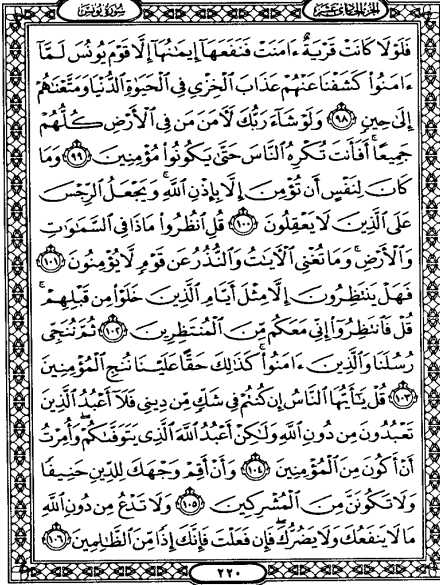 سورة يونس
الجزء الحادي عشر
فَلَوْلَا كَانَتْ قَرْيَةٌ ءَامَنَتْ فَنَفَعَهَآ إِيمَٰنُهَآ إِلَّا قَوْمَ يُونُسَ لَمَّآ
ءَامَنُوا۟ كَشَفْنَا عَنْهُمْ عَذَابَ ٱلْخِزْىِ فِى ٱلْحَيَوٰةِ ٱلدُّنْيَا وَمَتَّعْنَٰهُمْ
إِلَىٰ حِينٍ ٩٨ وَلَوْ شَآءَ رَبُّكَ لَءَامَنَ مَن فِى ٱلْأَرْضِ كُلُّهُمْ
جَمِيعًا ۚ أَفَأَنتَ تُكْرِهُ ٱلنَّاسَ حَتَّىٰ يَكُونُوا۟ مُؤْمِنِينَ ٩٩ وَمَا
كَانَ لِنَفْسٍ أَن تُؤْمِنَ إِلَّا بِإِذْنِ ٱللَّهِ ۚ وَيَجْعَلُ ٱلرِّجْسَ
عَلَى ٱلَّذِينَ لَا يَعْقِلُونَ ١٠٠ قُلِ ٱنظُرُوا۟ مَاذَا فِى ٱلسَّمَٰوَٰتِ
وَٱلْأَرْضِ ۚ وَمَا تُغْنِى ٱلْءَايَٰتُ وَٱلنُّذُرُ عَن قَوْمٍ لَّا يُؤْمِنُونَ ١٠١
فَهَلْ يَنتَظِرُونَ إِلَّا مِثْلَ أَيَّامِ ٱلَّذِينَ خَلَوْا۟ مِن قَبْلِهِمْ ۚ
قُلْ فَٱنتَظِرُوٓا۟ إِنِّى مَعَكُم مِّنَ ٱلْمُنتَظِرِينَ ١٠٢ ثُمَّ نُنَجِّى
رُسُلَنَا وَٱلَّذِينَ ءَامَنُوا۟ ۚ كَذَٰلِكَ حَقًّا عَلَيْنَا نُنجِ ٱلْمُؤْمِنِينَ
١٠٣ قُلْ يَٰٓأَيُّهَا ٱلنَّاسُ إِن كُنتُمْ فِى شَكٍّ مِّن دِينِى فَلَآ أَعْبُدُ ٱلَّذِينَ
تَعْبُدُونَ مِن دُونِ ٱللَّهِ وَلَٰكِنْ أَعْبُدُ ٱللَّهَ ٱلَّذِى يَتَوَفَّىٰكُمْ ۖ وَأُمِرْتُ
أَنْ أَكُونَ مِنَ ٱلْمُؤْمِنِينَ ١٠٤ وَأَنْ أَقِمْ وَجْهَكَ لِلدِّينِ حَنِيفًا
وَلَا تَكُونَنَّ مِنَ ٱلْمُشْرِكِينَ ١٠٥ وَلَا تَدْعُ مِن دُونِ ٱللَّهِ
مَا لَا يَنفَعُكَ وَلَا يَضُرُّكَ ۖ فَإِن فَعَلْتَ فَإِنَّكَ إِذًا مِّنَ ٱلظَّٰلِمِينَ ١٠٦
٢٢٠